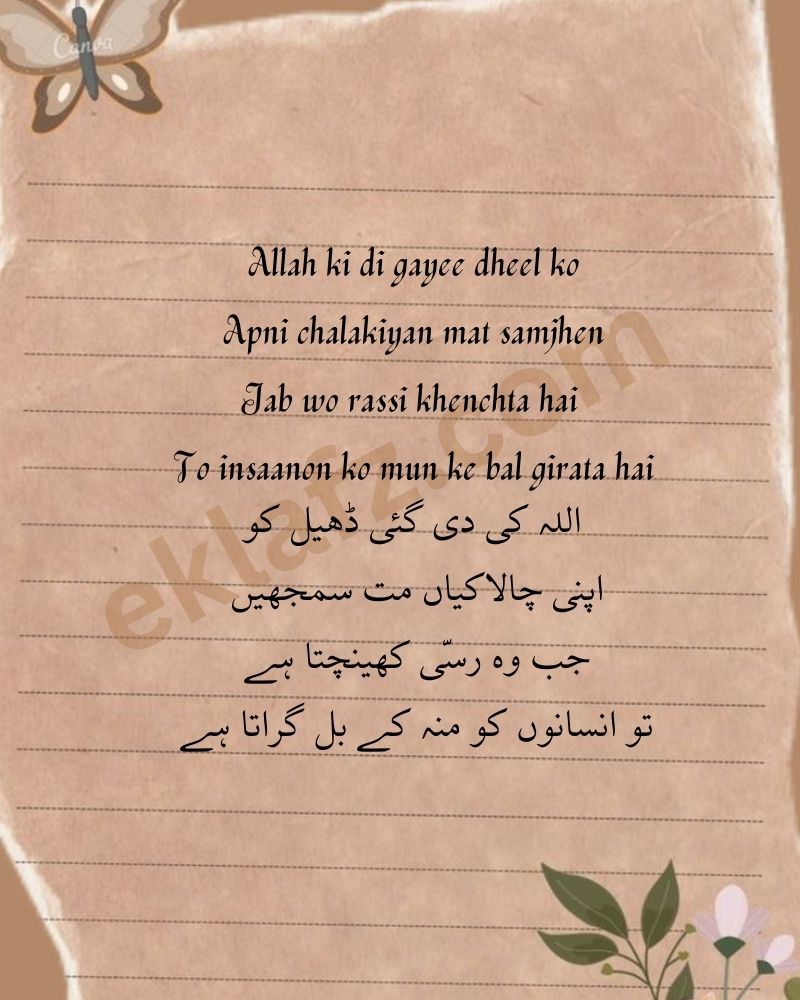 Canva
Allah ki di gayee dheel ko
Apni chalakiyan mat samjhen
Jab wo rassi khenchta hai
To insaanon ko mun ke bal girata hai
اللہ کی دی گئی ڈھیل کو
اپنی چالاکیاں مت سمجھیں
جب وہ رسّی کھینچتا ہے
تو انسانوں کو منہ کے بل گراتا ہے
eklafz.com